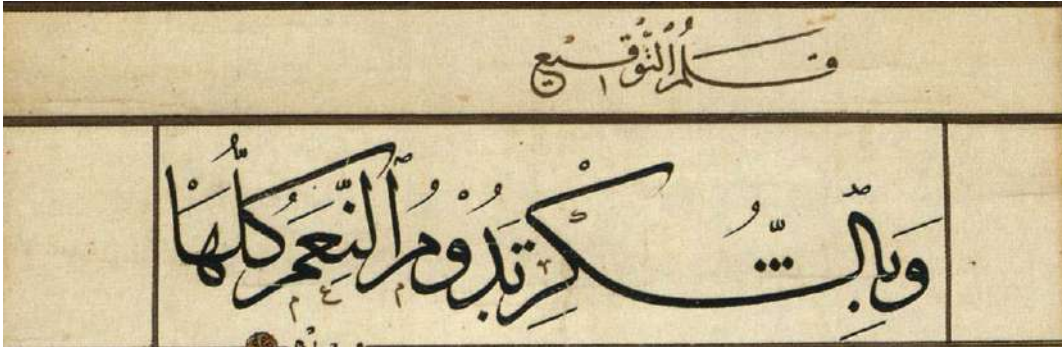 قَلَمُ التَّوْقِيع
وَبِالشُّكْرِ تَدُوْمُ ٱلنِّعَمُ كُلُّهَا